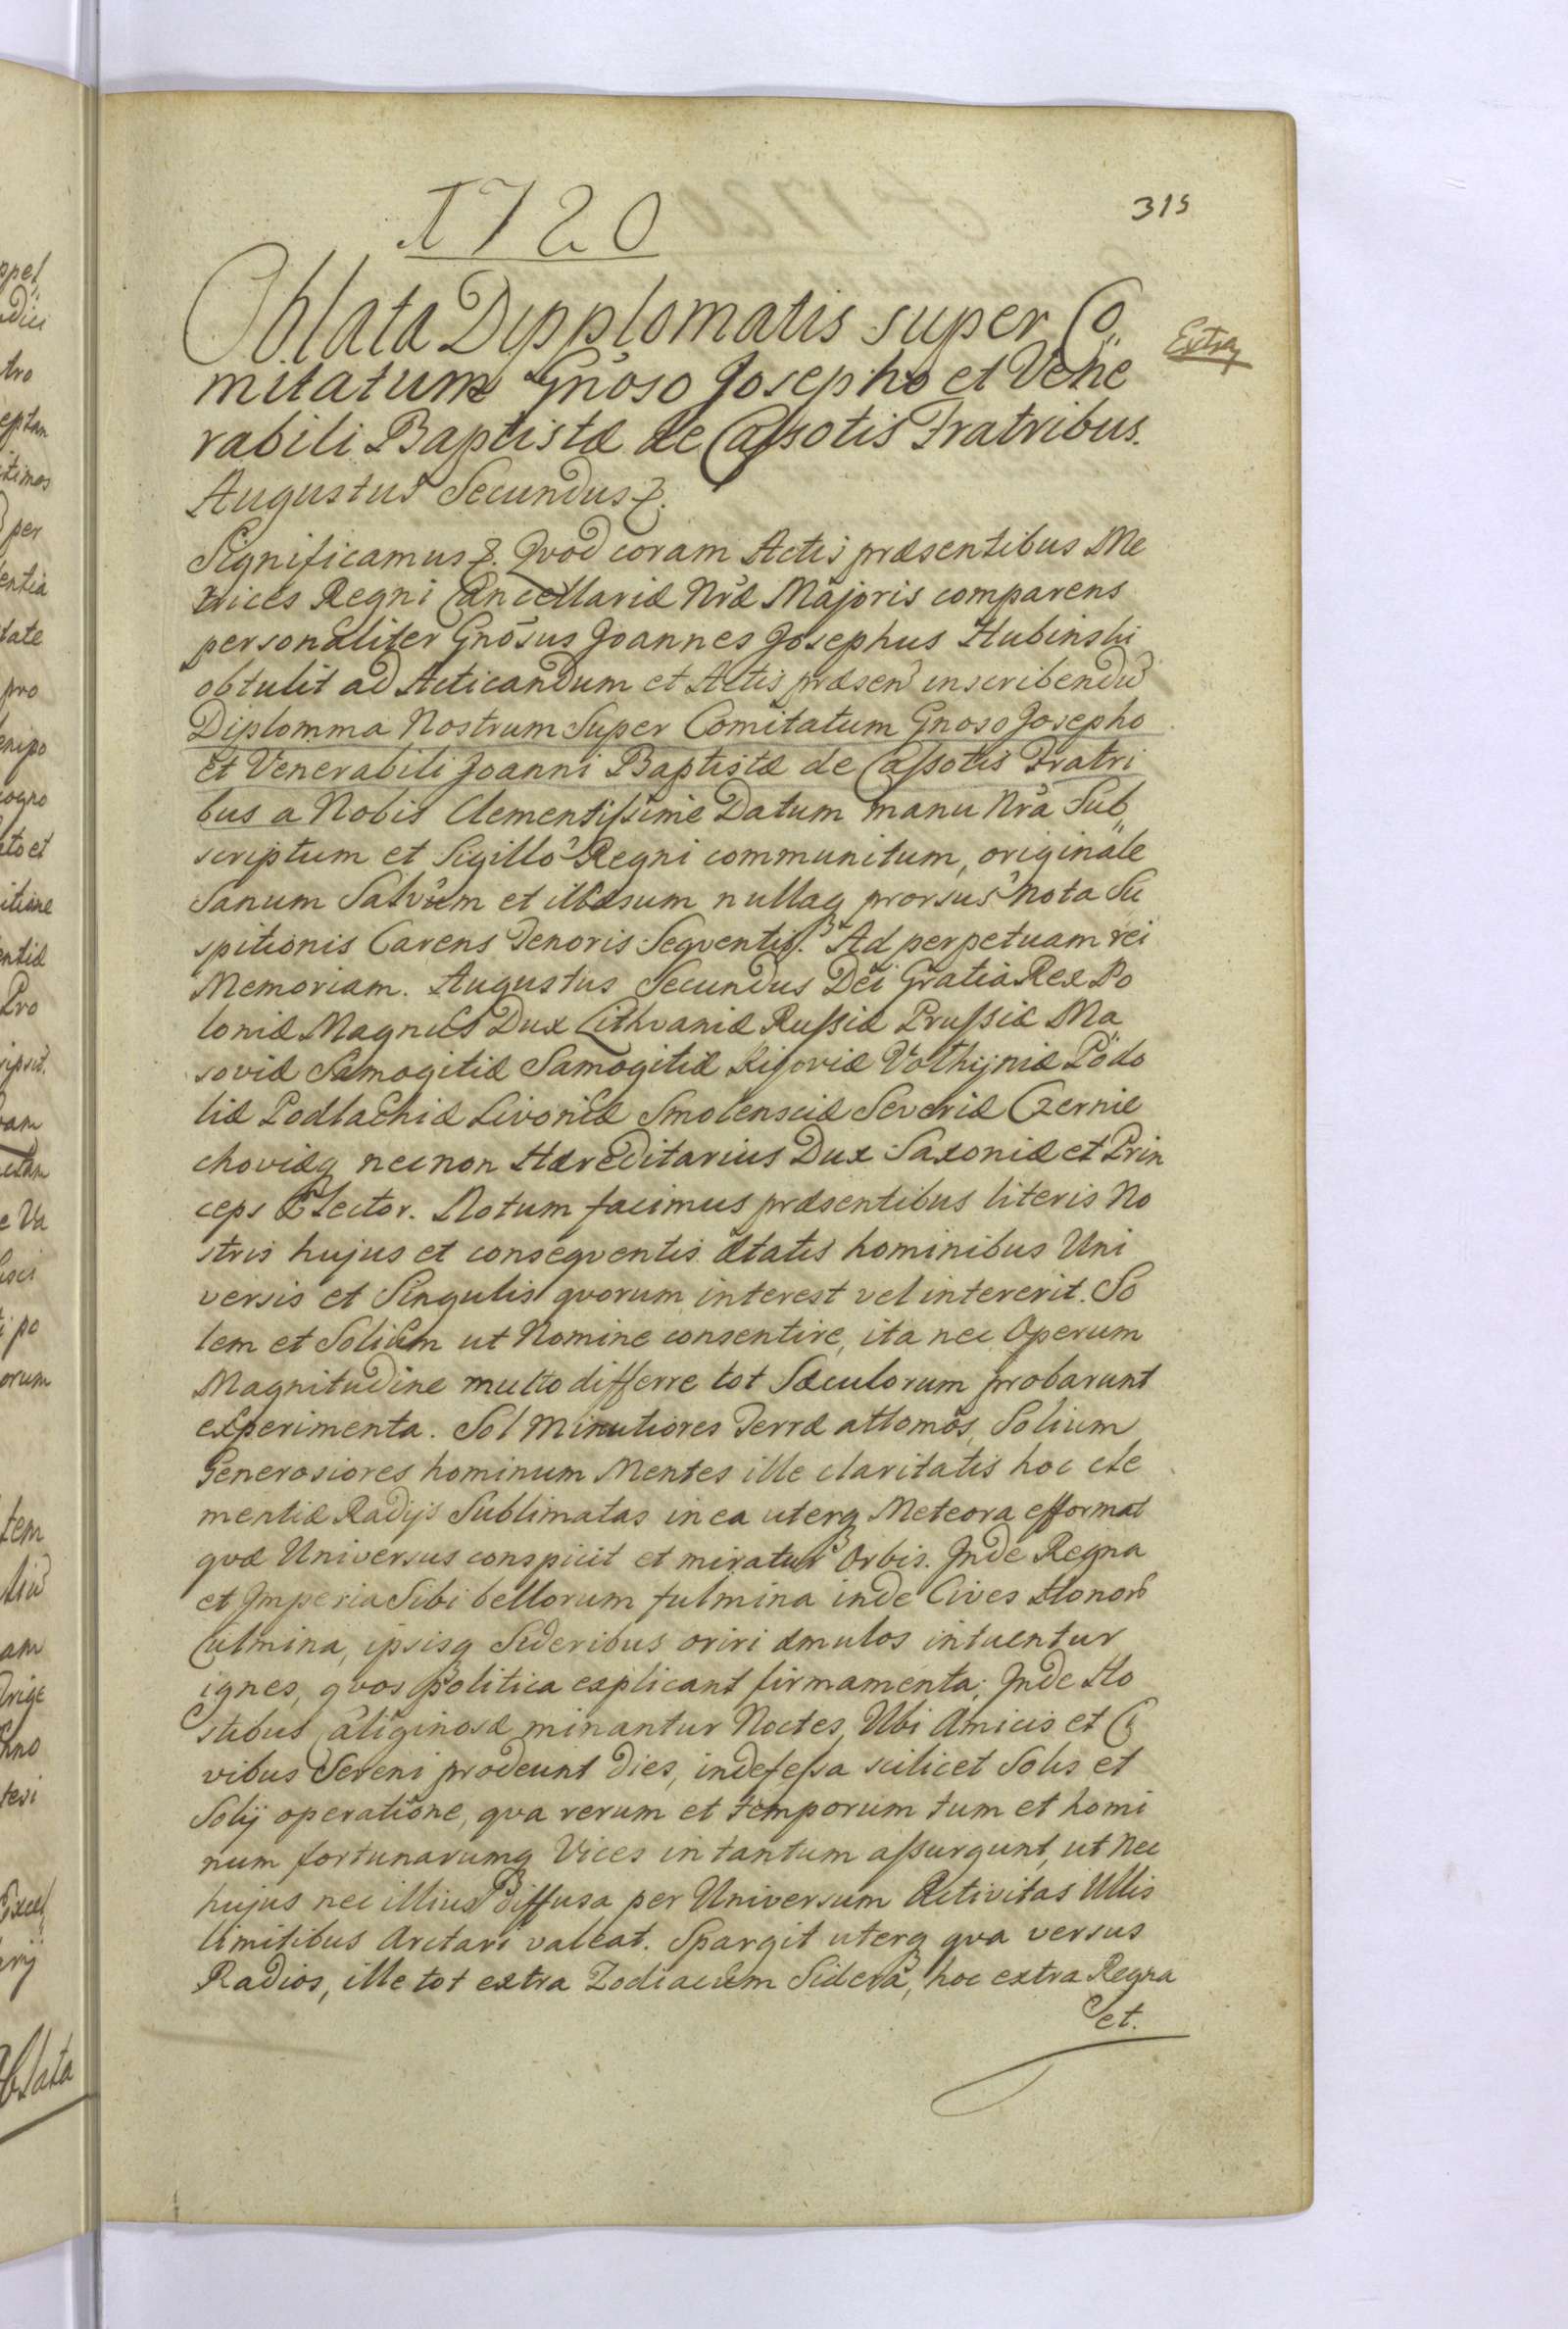 1720
315
Oblata Dipplomatis super Co„
mitatum Gnoso Josepho et Vene
rabili Baptistæ de Cassotis Fratribus.
Extra
Augustus Secundus &.
Significamus &. Qvod coram Actis præsentibus Me
trices Regni Cancellariæ Nræ Majoris comparens
personaliter Gnosus Joannes Josephus Hubinski
obtulit ad Acticandum et Actis præsen inscribendū
Diplomma Nostrum Super Comitatum Gnoso Josepho
et Venerabili Joanni Baptistæ de Cassotis Fratri
bus a Nobis Clementissime Datum manu Nra Sub„
scriptum et Sigillo Regni communitum, originale
Sanum Salvum et illæsum nullaq prorsus nota Su
spitionis Carens Tenoris Seqventis. Ad perpetuam rei
Memoriam. Augustus Secundus Dei Gratia Rex Po
loniæ Magnus Dux Lithvaniæ Russiæ Prussiæ Ma„
soviæ Samogitiæ Samogitiæ Kijoviæ Volhijniæ Podo
liæ Podlachiæ Livoniæ Smolensciæ Severiæ Czernie
choviæq necnon Hæreditarius Dux Saxoniæ et Prin
ceps Elector. Notum facimus præsentibus literis No
stris hujus et conseqventis ætatis hominibus Uni
versis et Singulis qvorum interest vel intererit. So
lem et Solium ut Nomine consentire, ita nec Operum
Magnitudine multo differre tot Sæculorum probarunt
experimenta. Sol Minutiores Terræ attomos, Solium
Generosiores hominum Mentes ille claritatis hoc cle
mentiæ Radijs Sublimatas in ea uterq Meteora efformat
qvæ Universus conspicit et miratur Orbis. Inde Regna
et Imperia Sibi bellorum fulmina inde Cives Honorū
Culmina, ipsisq Sideribus oriri æmulos intuentur
ignes, qvos Politica explicant firmamenta; Inde Ho
stibus Caliginosæ minantur Noctes, Ubi Amicis et Ci
vibus Sereni prodeunt dies, indefessa scilicet Solis et
Solij operatione, qva rerum et temporum tum et homi
num fortunarumq Vices in tantum assurgunt, ut nec
hujus nec illius diffusa per Universum Activitas Ullis
limitibus Arctari valeat. Spargit uterq qva versus
Radios, ille tot extra Zodiacum Sidera, hoc extra Regna
et.